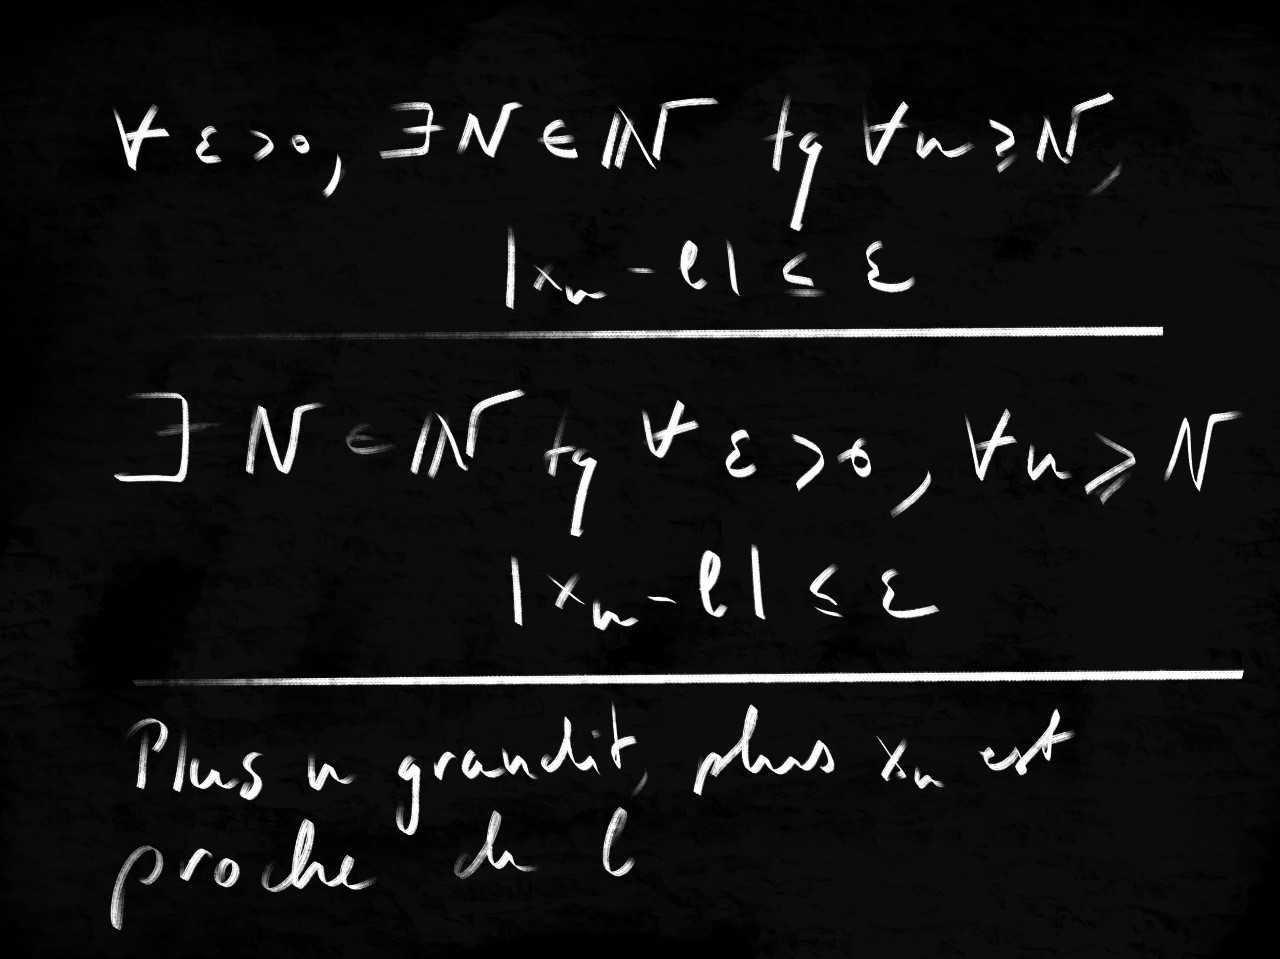 ∀ ε > 0, ∃ N ∈ ℕ tq ∀ n ⩾ N,
|xₙ - ℓ| ≤ ε
∃ N ∈ ℕ tq ∀ ε > 0, ∀ n ⩾ N
|xₙ - ℓ| ≤ ε
Plus n grandit, plus xₙ est
proche de ℓ